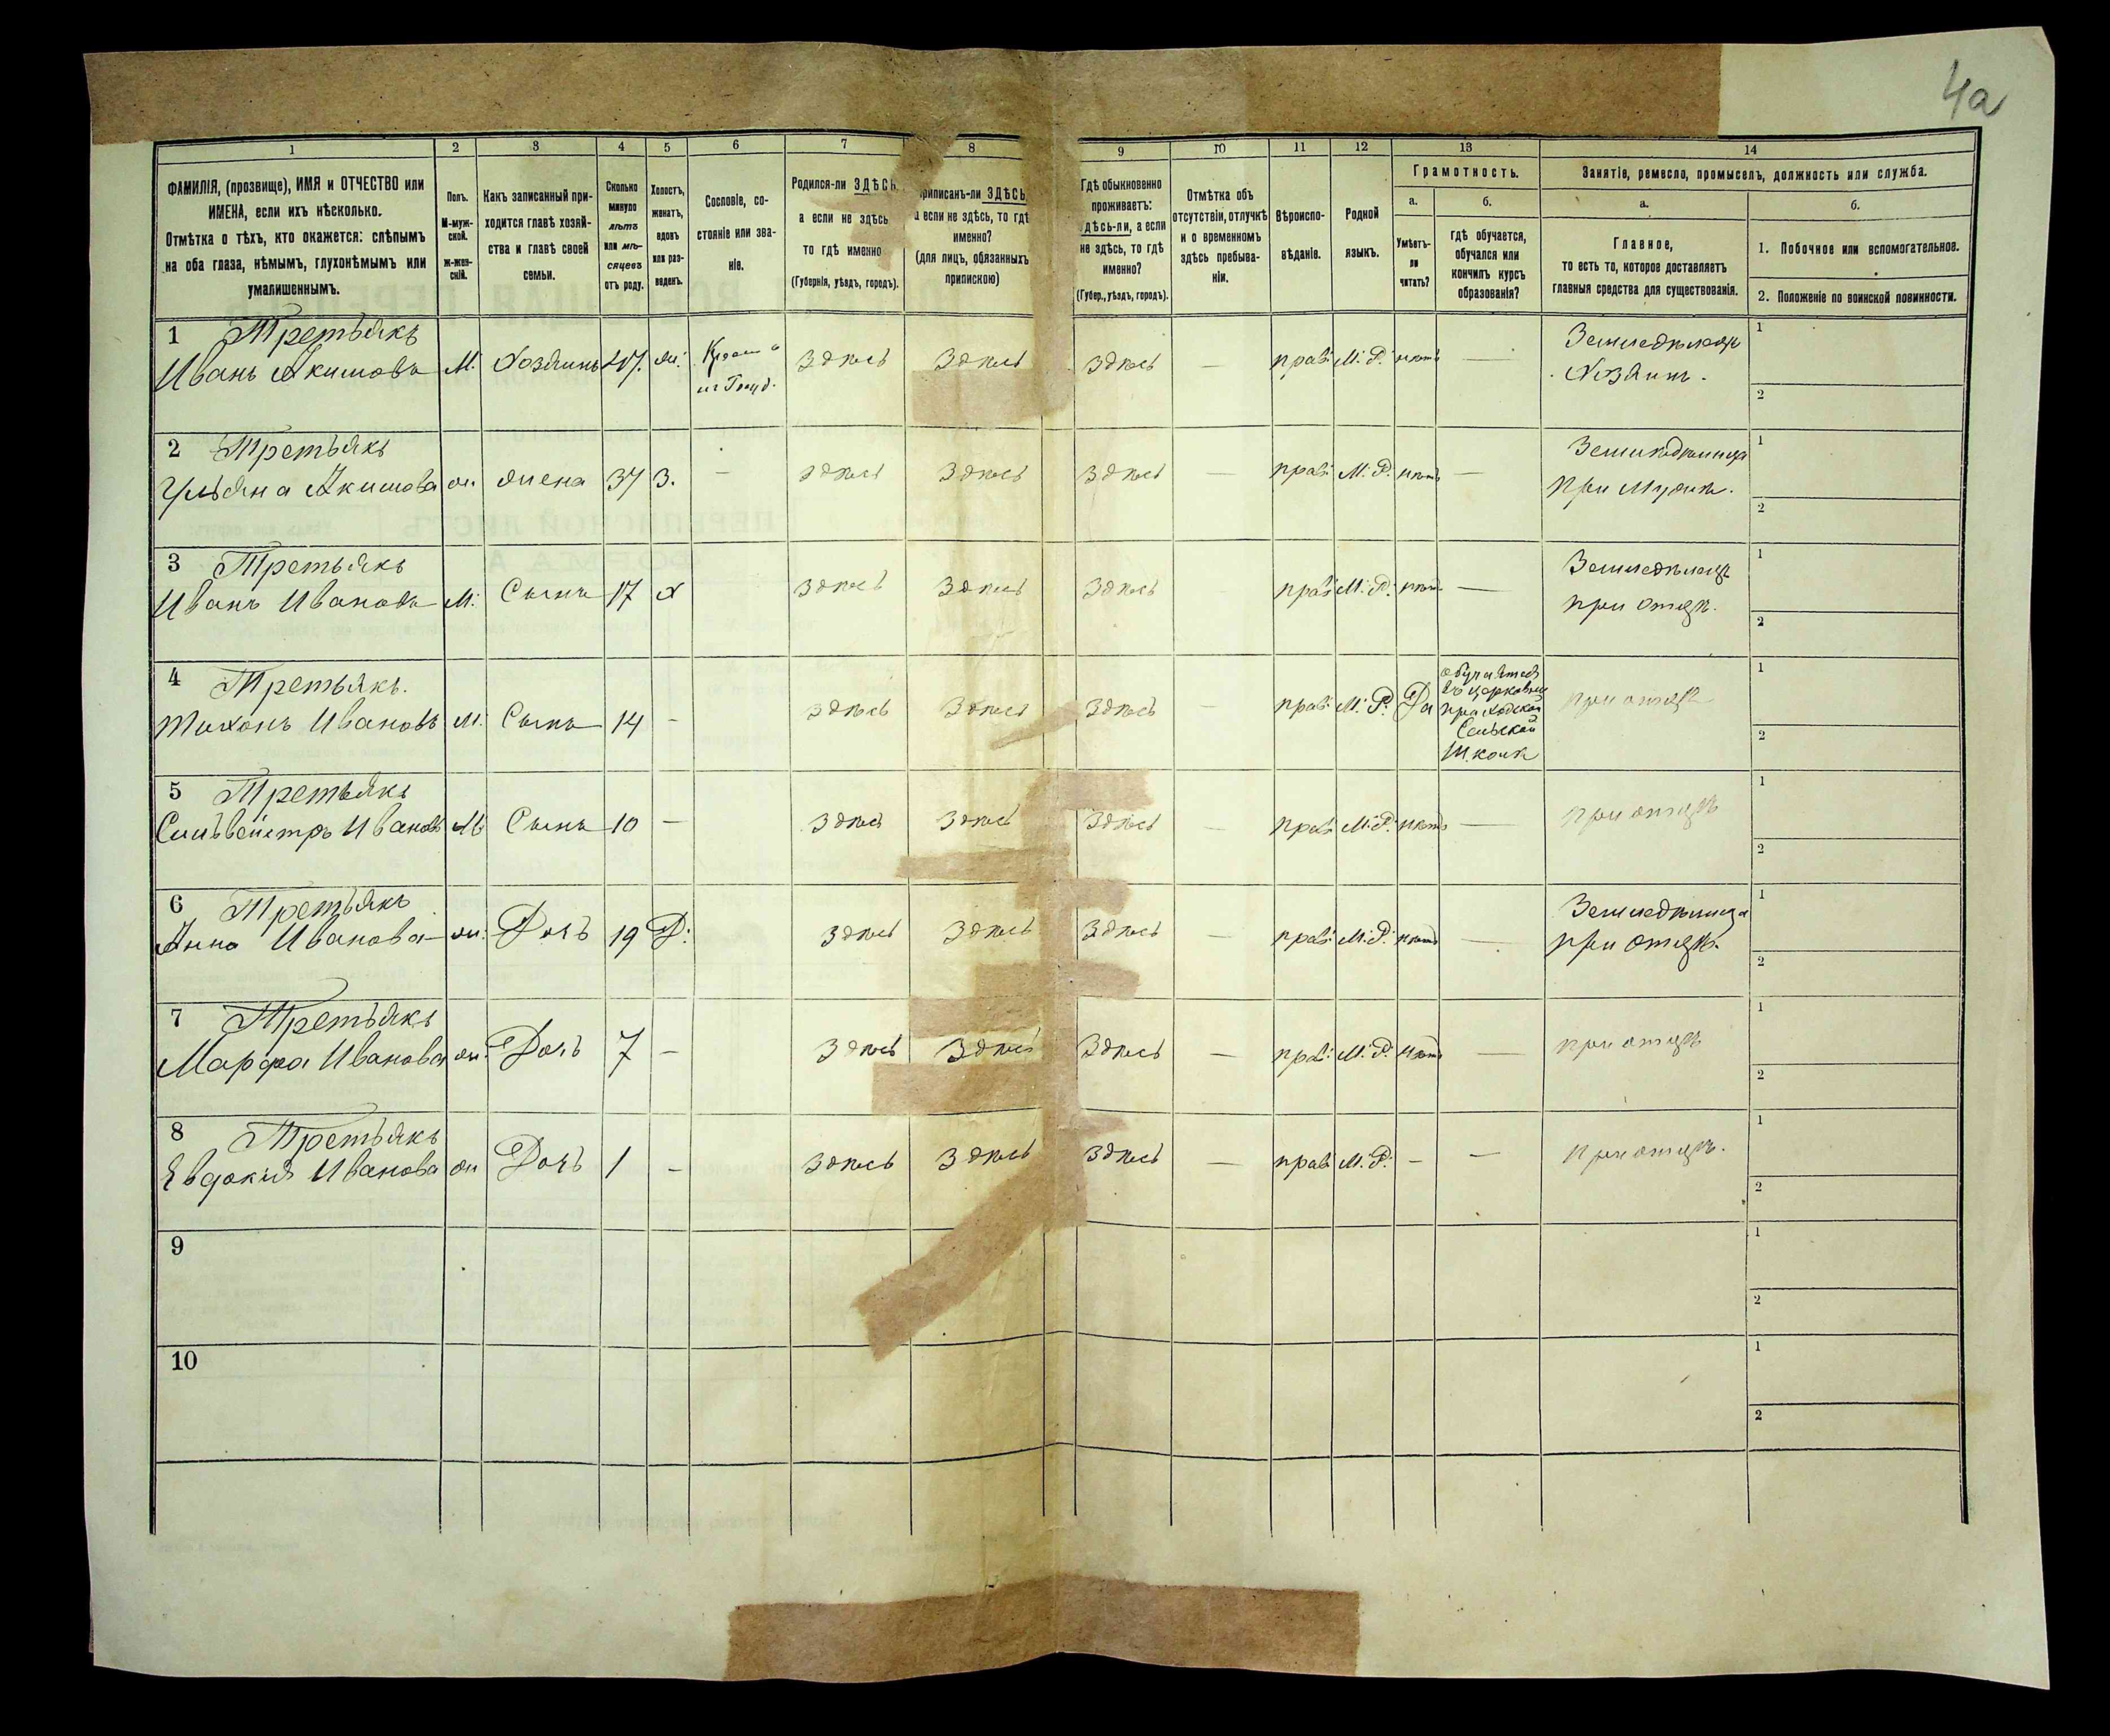 4а
1 2 3 4 5 6 7 8 9 10 11 12 13 14
ФАМИЛІЯ, (прозвище), ИМЯ и ОТЧЕСТВО или
ИМЕНА, если ихъ нѣсколько.
Отмѣтка о тѣхъ, кто окажется: слѣпымъ
на оба глаза, нѣмымъ, глухонѣмымъ или
умалишеннымъ.
Полъ.
М-муж-
ской.
ж-жен-
скій.
Какъ записанный при-
ходится главѣ хозяй-
ства и главѣ своей
семьи.
Сколько
минуло
лѣтъ
или мѣ-
сяцевъ
отъ роду.
Холостъ,
женатъ,
вдовъ
или раз-
веденъ.
Сословіе, со-
стояніе или зва-
ніе.
Родился-ли ЗДѢСЬ
а если не здѣсь
то гдѣ именно
(Губернія, уѣздъ, городъ).
приписанъ-ли ЗДѢСЬ
а если не здѣсь, то гдѣ
именно?
(для лицъ, обязанныхъ
припискою)
Гдѣ обыкновенно
проживаетъ:
здѣсь-ли, а если
не здѣсь, то гдѣ
именно?
(Губер., уѣздъ, городъ).
Отмѣтка объ
отсутствіи, отлучкѣ
и о временномъ
здѣсь пребыва-
ніи.
Вѣроиспо-
вѣданіе.
Родной
языкъ.
Грамотность.
а.
Умѣетъ-
ли
читать?
б.
гдѣ обучается,
обучался или
кончилъ курсъ
образованія?
Занятіе, ремесло, промыселъ, должность или служба.
а.
Главное,
то есть то, которое доставляетъ
главныя средства для существованія.
б.
1. Побочное или вспомогательное.
2. Положеніе по воинской повинности.
1 Третьякъ
Иванъ Акимовъ М. Хозяинъ 47. ж. Здѣсь Здѣсь Здѣсь — прав. М. Р. нѣтъ — Земледѣлецъ
Хозяинъ.
1
2
2 Третьякъ
Ульяна Акимова ж. жена 37 З. — Здѣсь Здѣсь Здѣсь — прав. М. Р. нѣтъ — Земледѣлица
при мужѣ.
1
2
3 Третьякъ
Иванъ Ивановъ М. Сынъ 17 х Здѣсь Здѣсь Здѣсь — прав. М. Р. нѣтъ — Земледѣлецъ
при отцѣ.
1
2
4 Третьякъ.
Тихонъ Ивановъ М. Сынъ 14 — Здѣсь Здѣсь Здѣсь — прав. М. Р. Да при отцѣ
обучается
въ церковно
приходской
Сельской
Школѣ
1
2
5 Третьякъ
Сильвейстръ Ивановъ М Сынъ 10 — Здѣсь Здѣсь Здѣсь — прав. М. Р. нѣтъ — при отцѣ
1
2
6 Третьякъ
Анна Иванова ж. Дочь 19 Д. Здѣсь Здѣсь Здѣсь — прав. М. Р. нѣтъ — Земледѣлица
при отцѣ.
1
2
7 Третьякъ
Марфа Иванова ж. Дочь 7 — Здѣсь Здѣсь Здѣсь — прав. М. Р. нѣтъ — при отцѣ
1
2
8 Третьякъ
Евдокия Иванова ж Дочь 1 — Здѣсь Здѣсь Здѣсь — прав. М. Р. — — при отцѣ.
1
2
9
1
2
10
1
2